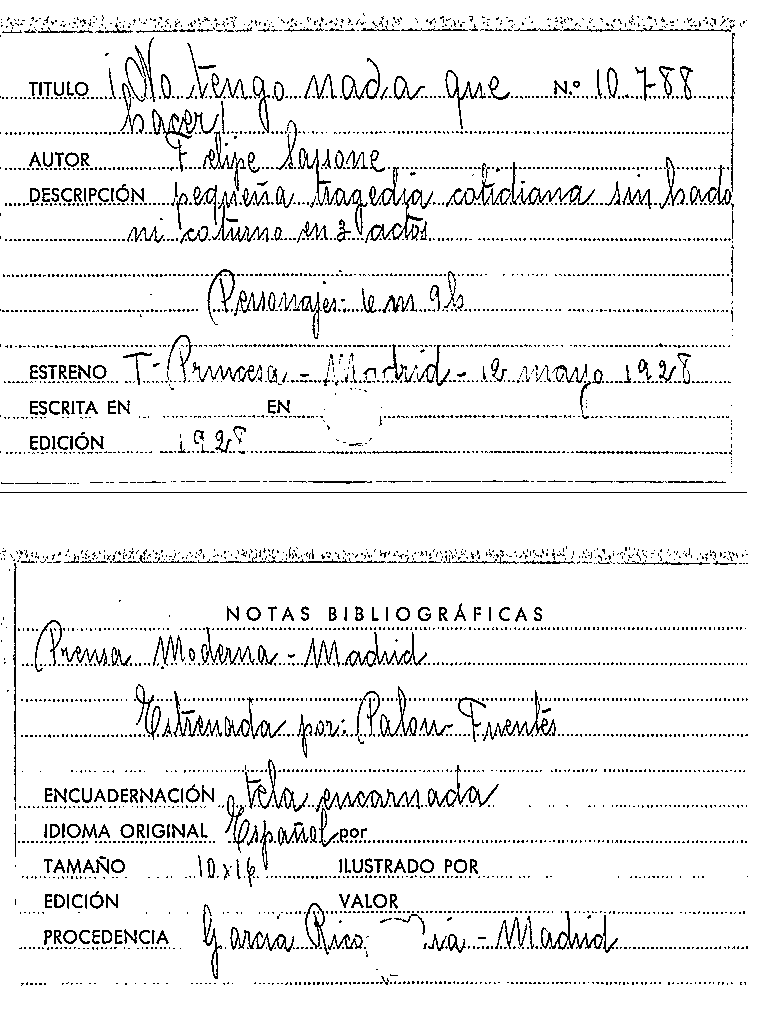 TITULO ¡No tengo nada que Nº 10.788
hacer!
AUTOR Felipe Sassone
DESCRIPCIÓN pequeña tragedia cotidiana sin hado
ni coturno en 3 actos
Personajes: 6 m 9 h
ESTRENO T- Princesa - Madrid - 12 mayo 1928
ESCRITA EN EN
EDICIÓN 1928
NOTAS BIBLIOGRÁFICAS
Prensa Moderna - Madrid
Estrenada por: Palou- Fuentes
ENCUADERNACIÓN tela encarnada
IDIOMA ORIGINAL Español por
TAMAÑO 10x16 ILUSTRADO POR
EDICIÓN VALOR
PROCEDENCIA García Rico - Madrid